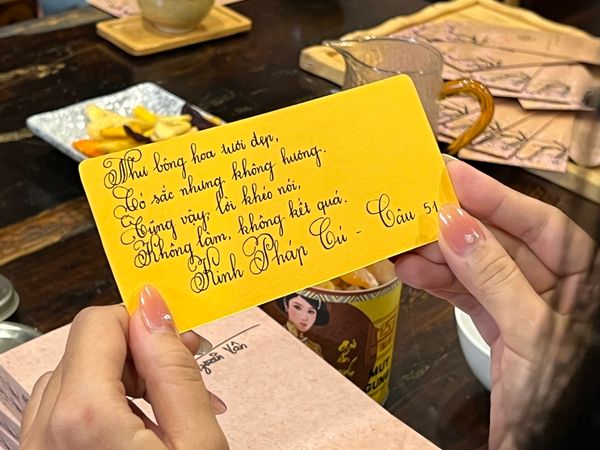 Như bông hoa tươi đẹp,
Có sắc nhưng không hương.
Cũng vậy, lời khéo nói,
Không làm, không kết quả.
Kinh Pháp Cú - Câu 51
MỨT
GỪNG
Vân